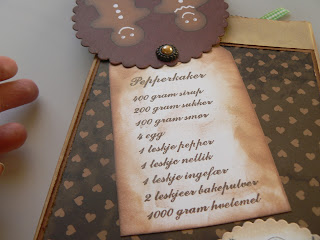 Pepperkaker
400 gram sirup
200 gram sukker
100 gram smør
4 egg
1 teskje pepper
1 teskje nellik
1 teskje ingefær
2 teskjeer bakepulver
1000 gram hvetemel